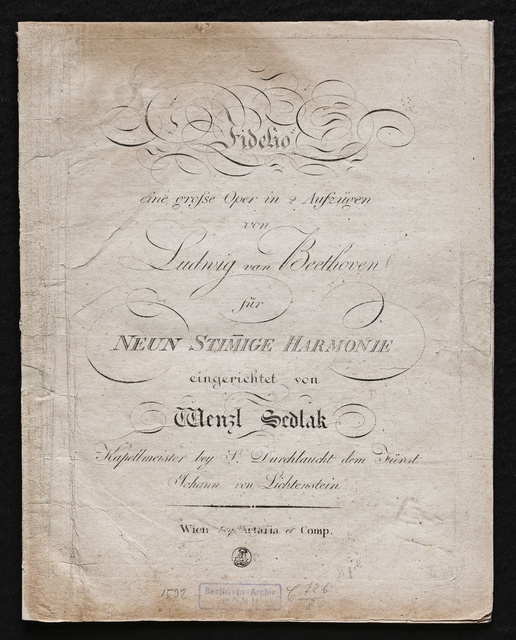 Fidelio
eine große Oper in 2 Aufzügen
von
Ludwig van Beethoven
für
NEUN STIM̄IGE HARMONIE
eingerichtet von
Wenzl Sedlak
Kapellmeister bey Sr. Durchlaucht dem Fürst
Johann von Lichtenstein
Wien bey Artaria et Comp.
1592
Beethoven-Archiv
BONN
C 726